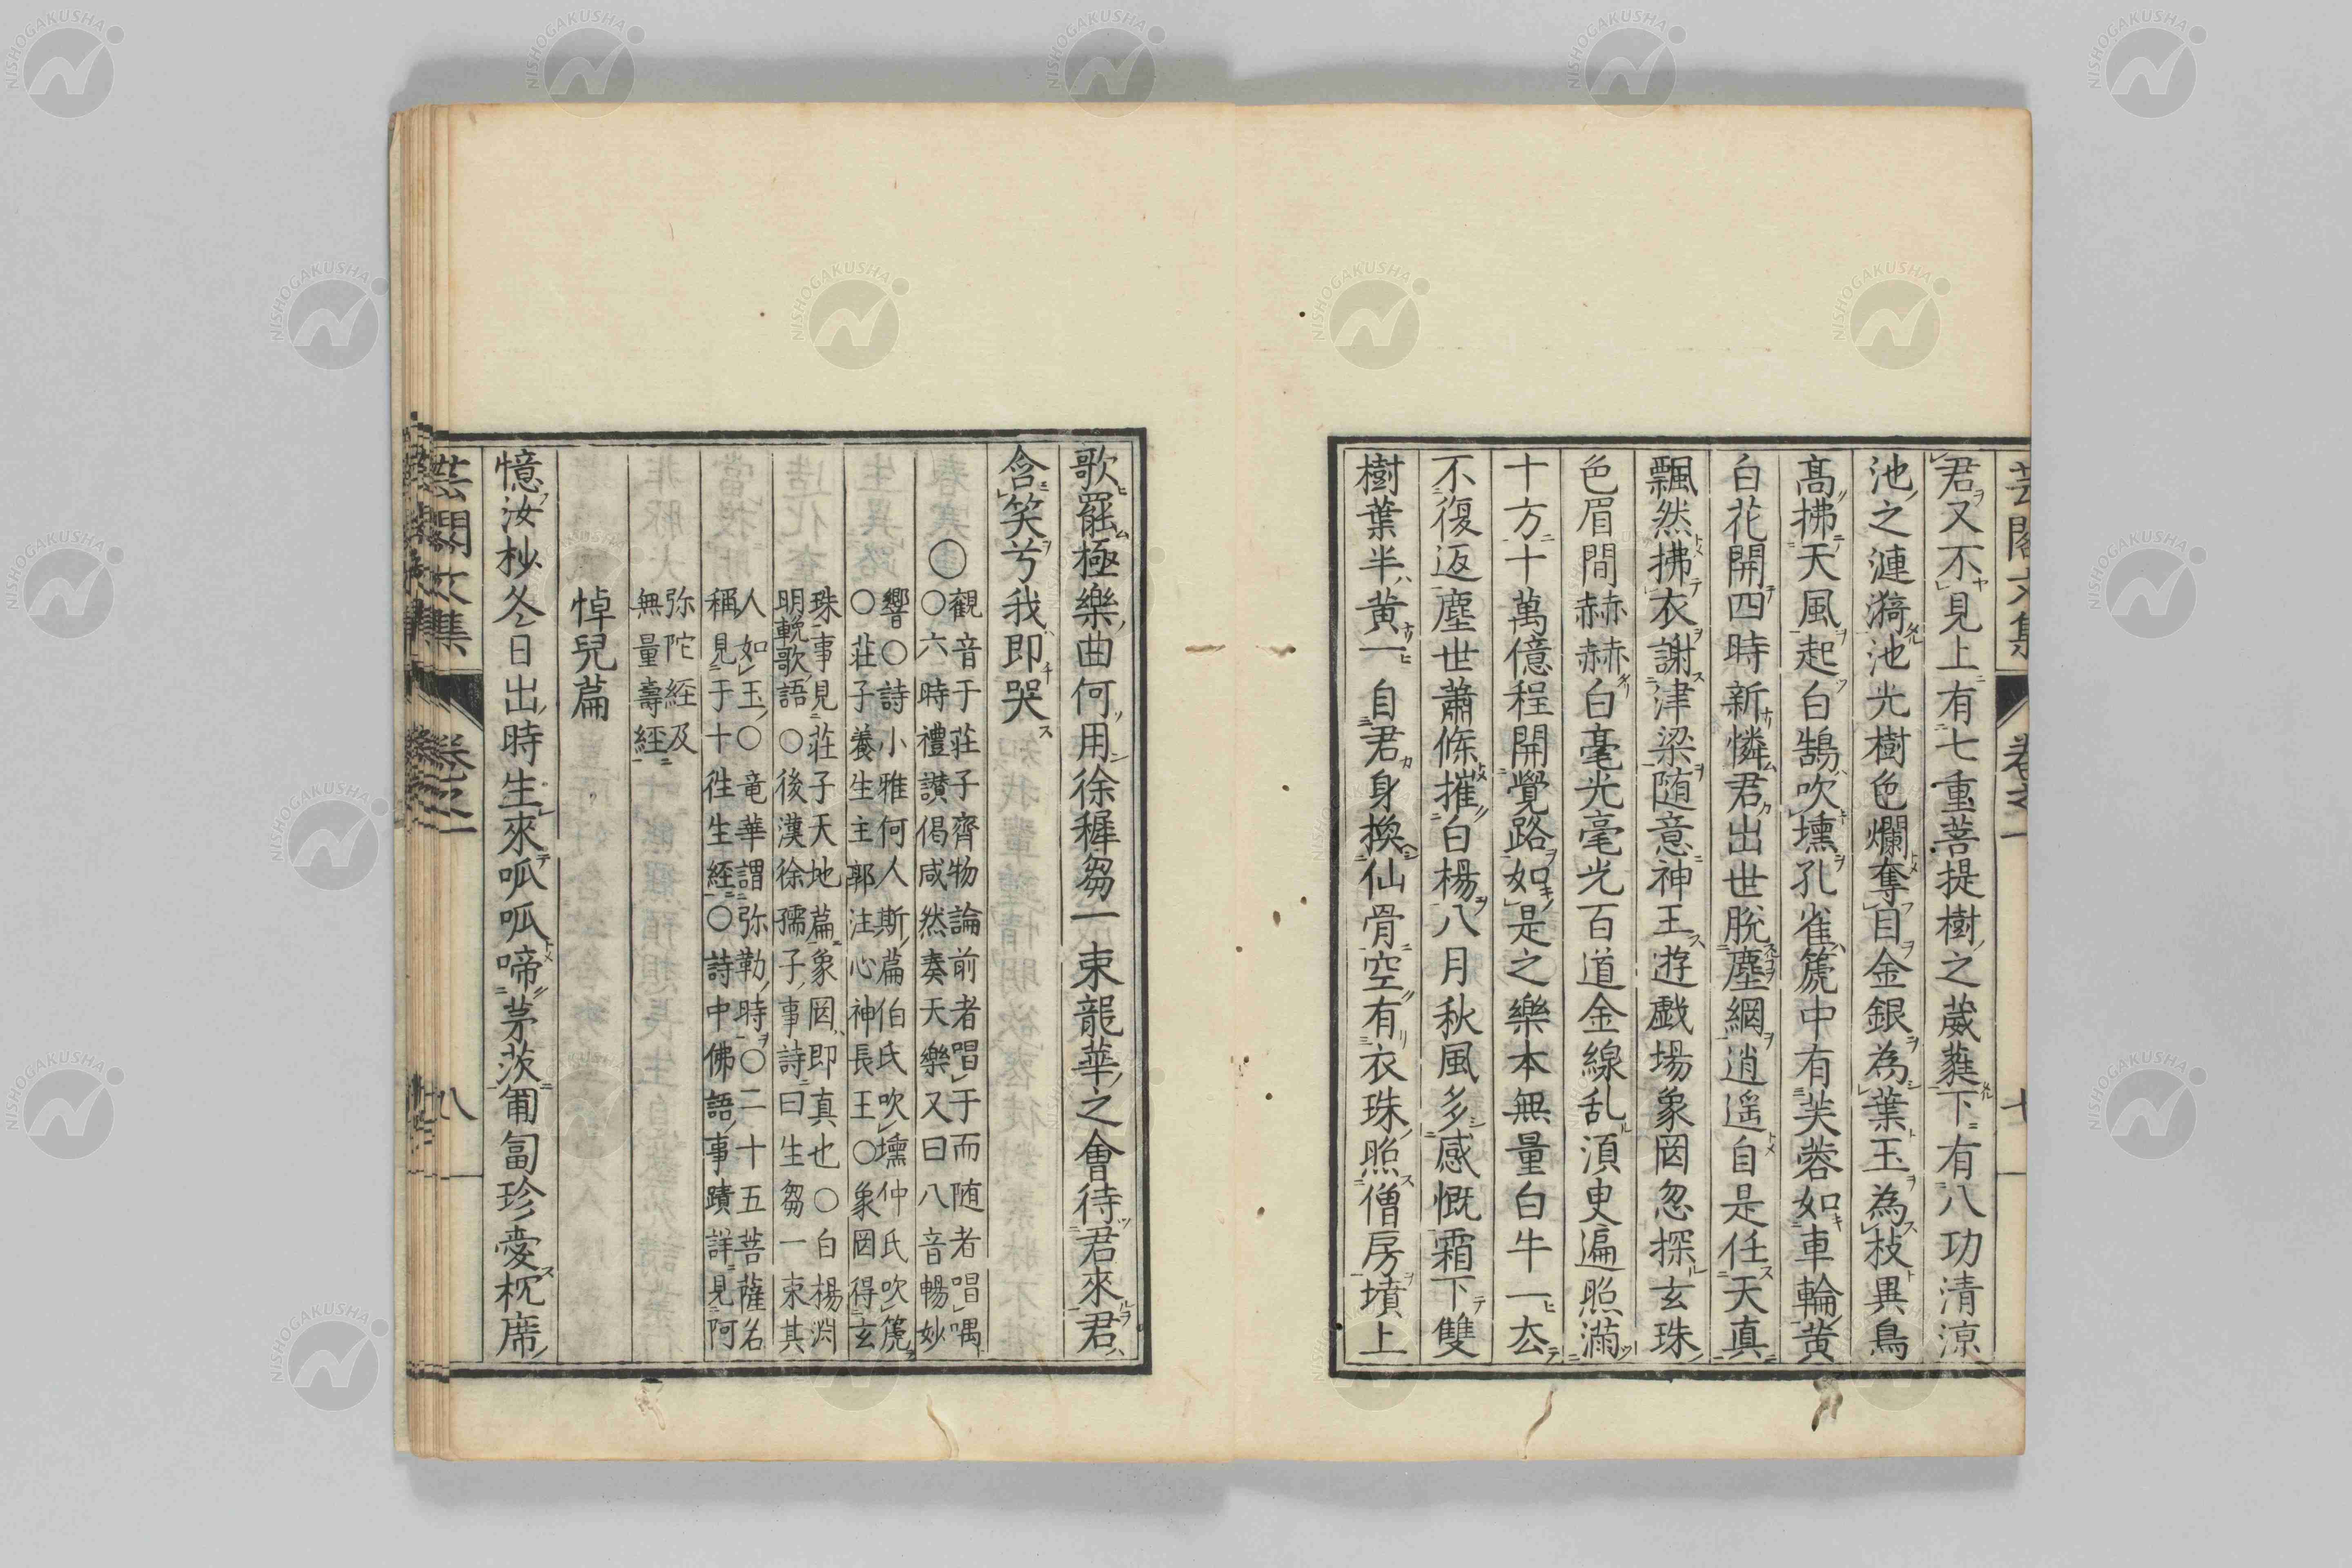 芸閣文集 卷之一 七
君又不見上有七重菩提樹之葳蕤下有八功清涼
池之漣漪池光樹色爛奪目金銀為葉玉為枝異鳥
高拂天風起白鵠吹壎孔雀篪中有芙蓉如車輪黄
白花開四時新憐君出世脱塵網逍遥自是任天真
飄然拂衣謝津梁随意神王遊戯場象罔忽探玄珠
色眉間赫赫白毫光毫光百道金線乱湏臾遍照満
十方十萬億程開覺路如是之樂本無量白牛一去
不復返塵世蕭條摧白楊八月秋風多感慨霜下雙
樹葉半黄一自君身換仙骨空有衣珠照僧房墳上
歌罷極樂曲何用徐穉芻一束龍華之會待君來君
含笑兮我即哭
○觀音于莊子齊物論前者唱于而随者唱喁
○六時禮讃偈咸然奏天樂又曰八音暢妙
響○詩小雅何人斯篇伯氏吹壎仲氏吹篪
○莊子養生主郭注心神長王○象罔得玄
珠事見莊子天地篇象罔即真也○白楊淵
明輓歌語○後漢徐孺子事詩曰生芻一束其
人如玉○竜華謂弥勒時○二十五菩薩名
稱見于十徃生經○詩中佛語事蹟詳見阿
弥陀經及
無量壽經
悼兒篇
憶汝杪冬日出時生來呱呱啼茅茨匍匐珍愛枕席
芸閣文集 卷之一 八
NISHOGAKUSHA